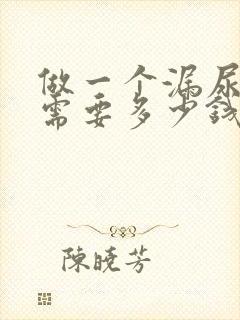 做一个漏尿
需要多少钱
陳曉芳